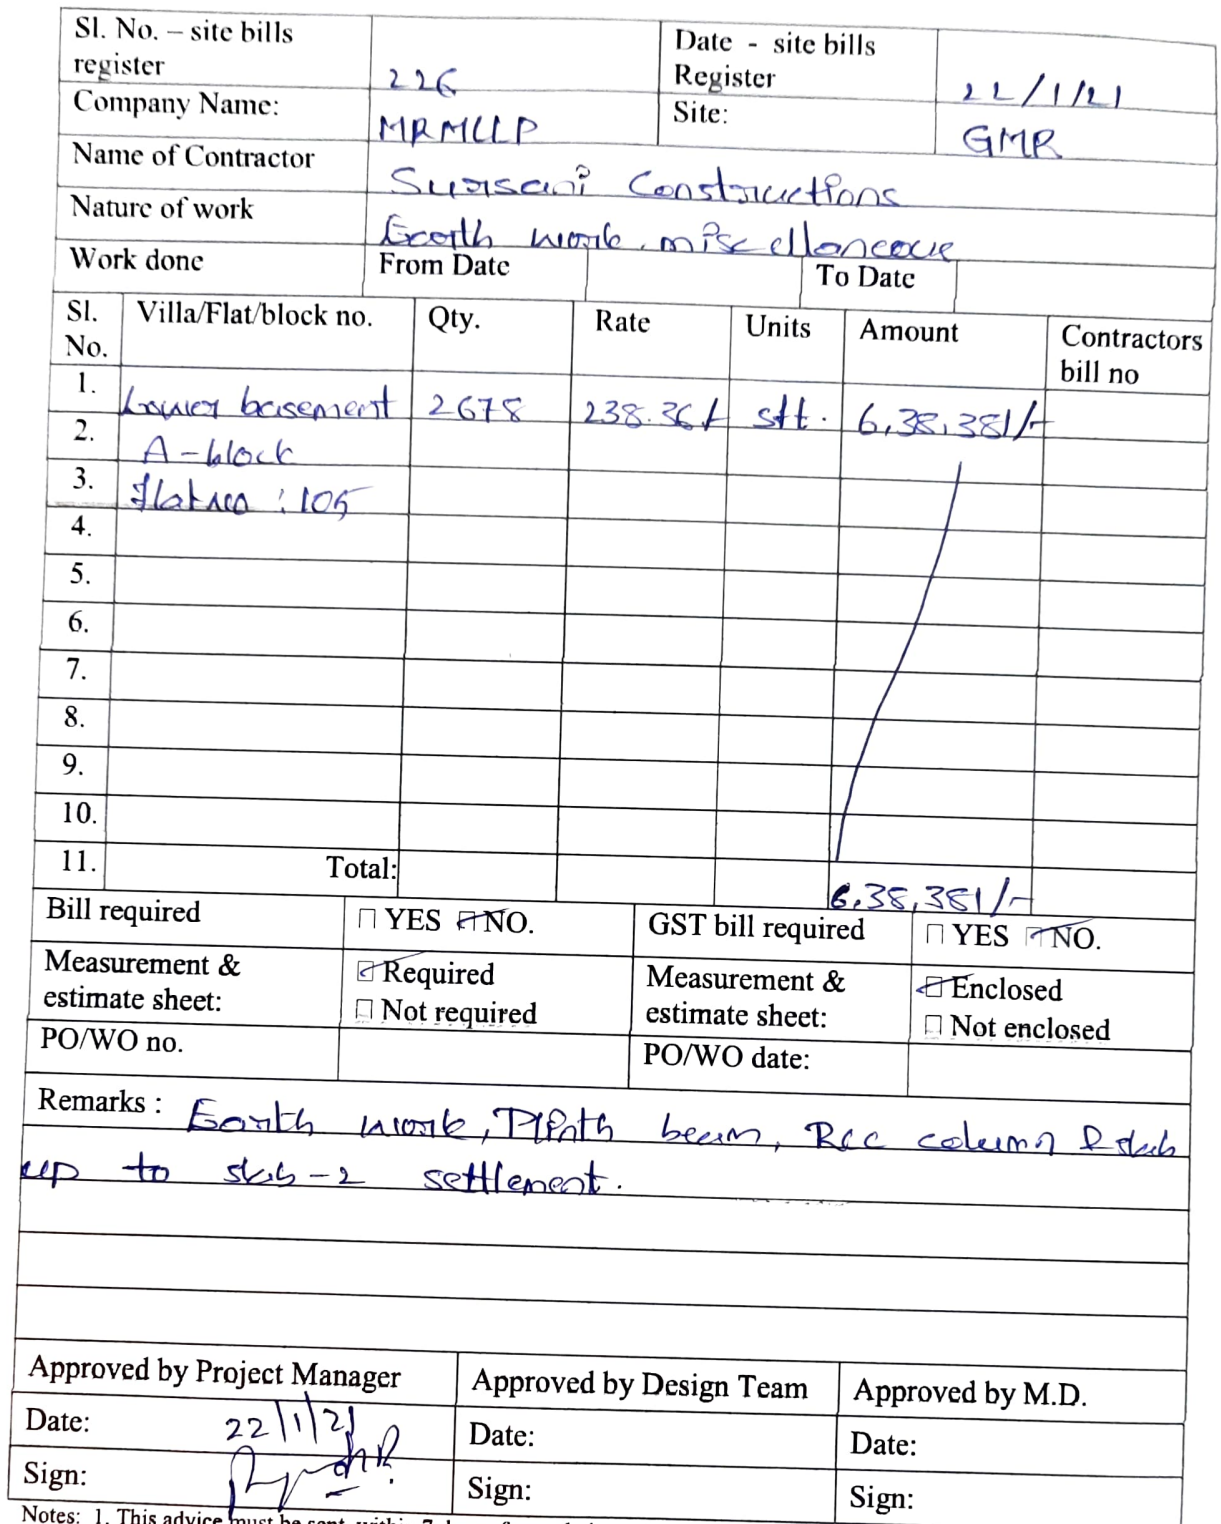 Sl. No. – site bills register 226 Date - site bills Register 22/1/21
Company Name: MRMLLP Site: GMR
Name of Contractor Sursani Constructions
Nature of work Earth work miscellaneous
Work done From Date To Date
Sl. No. Villa/Flat/block no. Qty. Rate Units Amount Contractors bill no
1. Lower basement 2678 238.36/- sft. 6,38,381/-
2. A-block
3. flat no : 105
4.
5.
6.
7.
8.
9.
10.
11. Total: 6,38,381/-
Bill required YES NO. GST bill required YES NO.
Measurement & estimate sheet: Required Not required Measurement & estimate sheet: Enclosed Not enclosed
PO/WO no. PO/WO date:
Remarks : Earth work, Plinth beam, Rcc column & slab
up to slab-2 settlement.
Approved by Project Manager Approved by Design Team Approved by M.D.
Date: 22/1/21 Date: Date:
Sign: Sign: Sign:
Notes: 1. This advice must be sent within 7 days